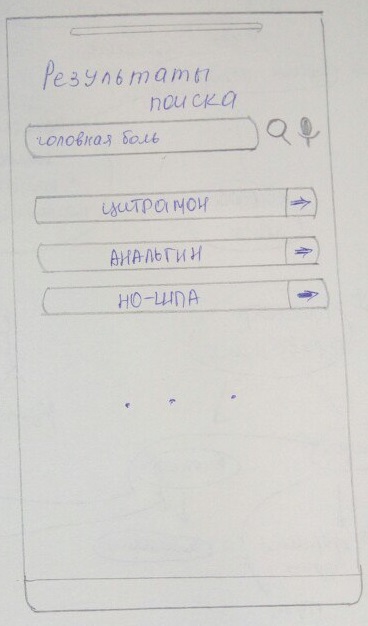 Результаты
поиска
головная боль
цитрамон
АНАЛЬГИН
НО-ШПА
. . .